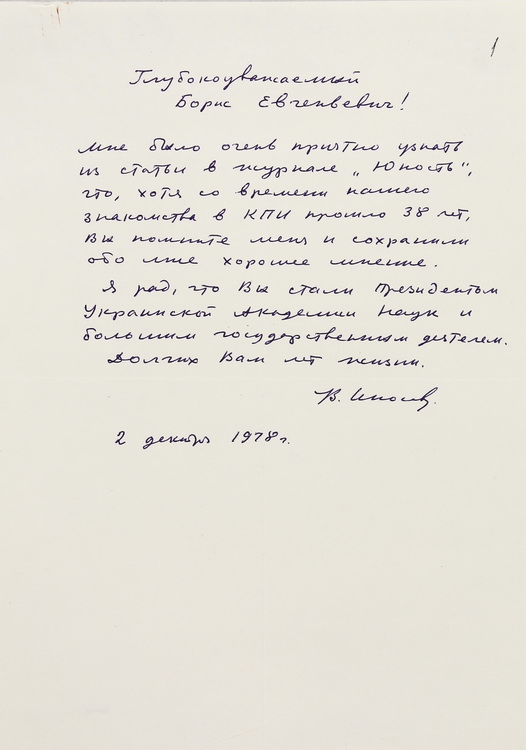 1
Глубокоуважаемый
Борис Евгеньевич!
Мне было очень приятно узнать
из статьи в журнале „Юность“,
что, хотя со времени нашего
знакомства в КПИ прошло 38 лет,
Вы помните меня и сохранили
обо мне хорошее мнение.
Я рад, что Вы стали Президентом
Украинской Академии Наук и
большим государственным деятелем.
Долгих Вам лет жизни.
В.
2 декабря 1978г.